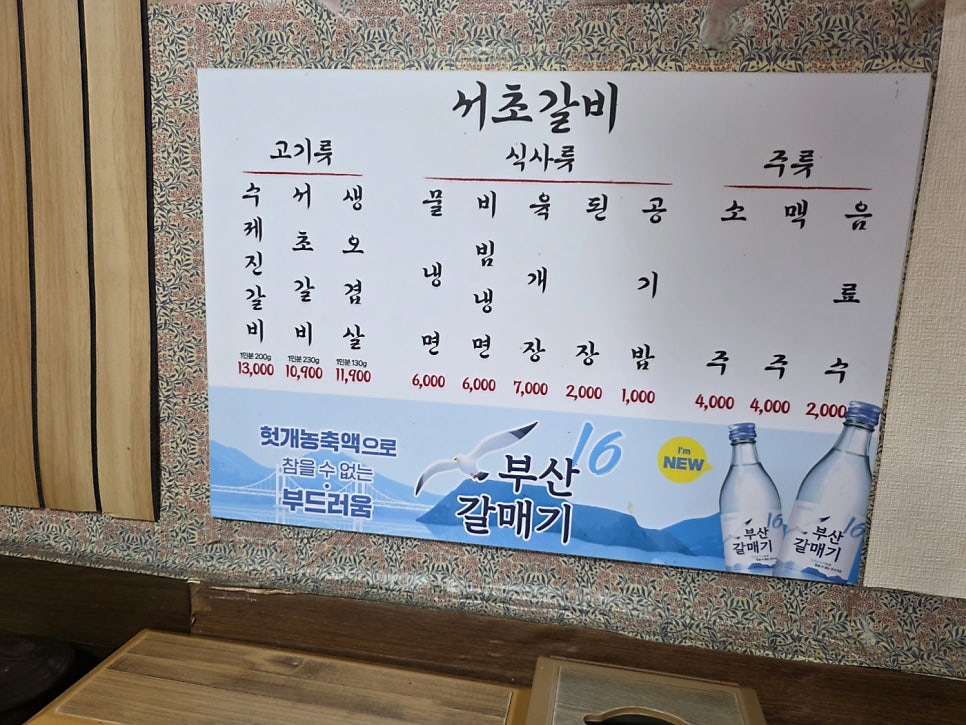 서초갈비
고기류
수제진갈비
1인분 200g
13,000
서초갈비
1인분 230g
10,900
생오겹살
1인분 130g
11,900
식사류
물냉면
6,000
비빔냉면
6,000
육개장
7,000
된장
2,000
공기밥
1,000
주류
소주
4,000
맥주
4,000
음료수
2,000
헛개농축액으로
참을 수 없는
부드러움
부산
갈매기
16
I'm
NEW
부산
갈매기
16
부산
갈매기
16